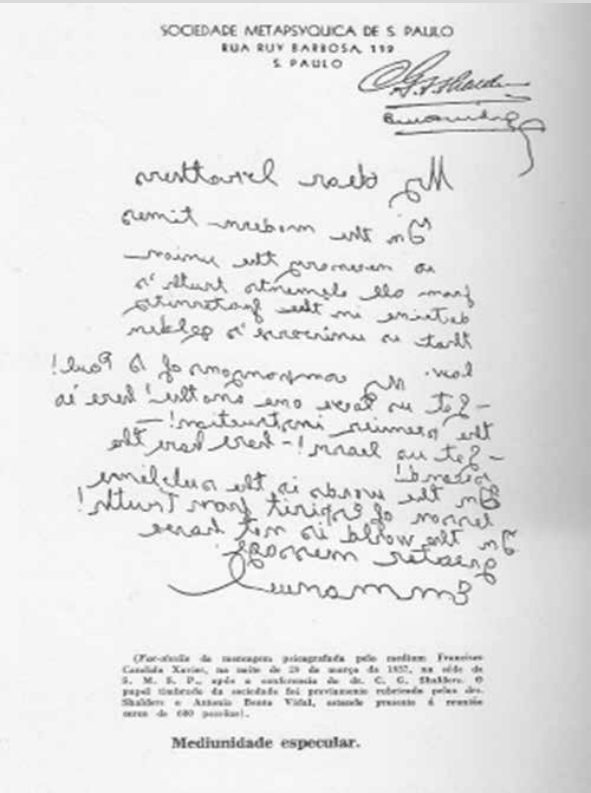 SOCIEDADE METAPSYQUICA DE S. PAULO
RUA RUY BARBOSA, 112
S. PAULO
My dear brothers
In the modern-times
the union
from all elements truth's
in the fraternity
that is universe's golden
law. My of S. Paul!
- Let us love one another! here is
the genuine instruction! -
- Let us learn! - here have the
second!
In the words is the sublime
lesson of Spirit from Truth!
In the world is not have
greater message.
Emmanuel
(Fac-simile da mensagem psicografada pelo medium Francisco
Candido Xavier, na noite de 29 de março de 1937, na séde da
S. M. S. P., após a conferencia do dr. C. G. Shalders. O
papel timbrado da sociedade foi previamente rubricado pelos drs.
Shalders e Antonio Bento Vidal, estando presente á reunião
cerca de 600 pessôas).
Mediunidade especular.